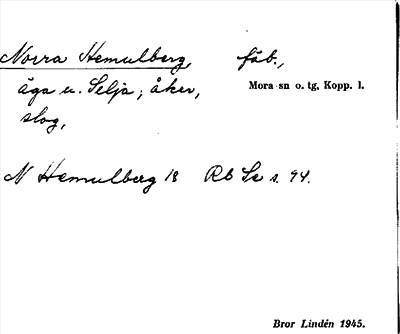 Norra Hemulberg, fäb.,
äga u. Selja; åker, Mora sn o. tg, Kopp. l.
slog,
N Hemulberg 18 Rb Se s. 94.
Bror Lindén 1945.